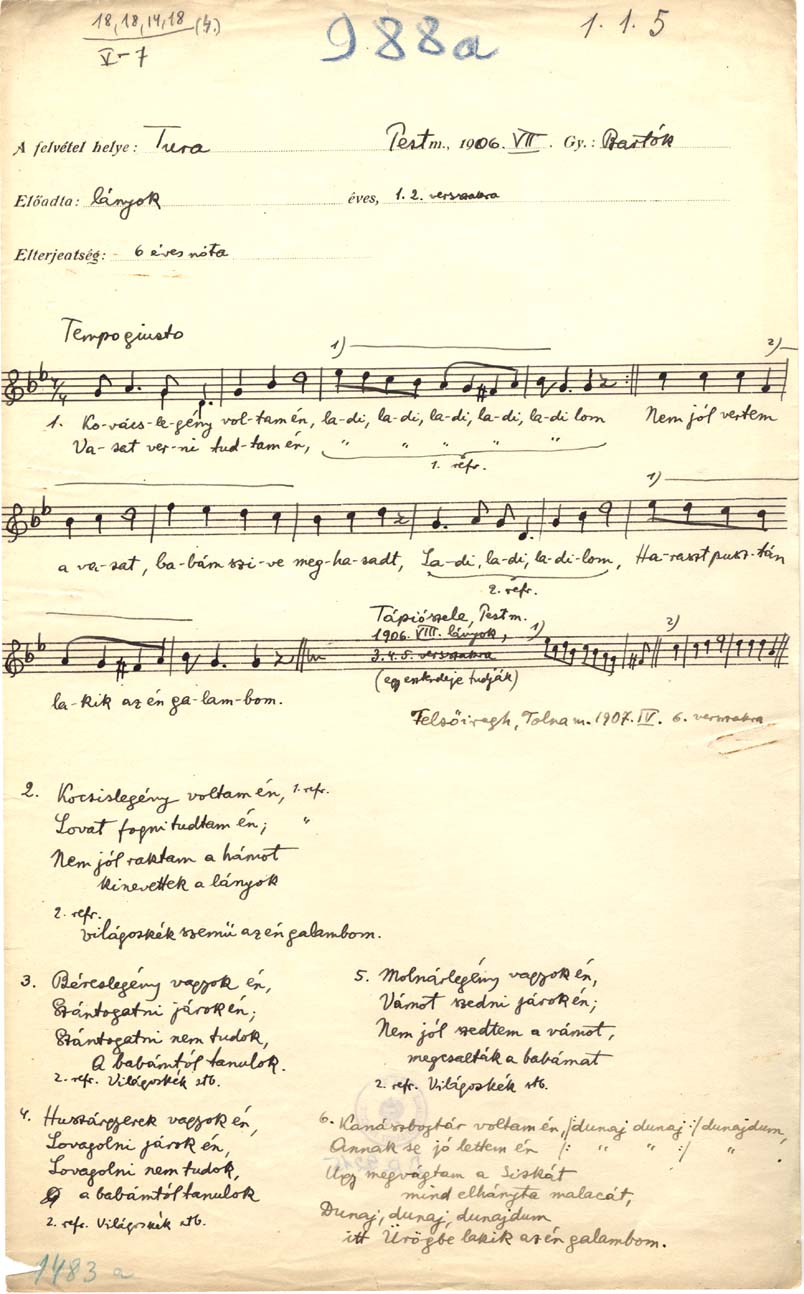 18, 18, 14, 18 (4.)
V-7
988a
1. 1. 5
A felvétel helye: Tura Pest m., 1906. VII. Gy.: Bartók
Előadta: lányok éves, 1. 2. versszakra
Elterjedtség: 6 éves nóta
Tempo giusto
1) 2)
1. Ko-vács-le-gény vol-tam én, la-di, la-di, la-di, la-di, la-di lom Nem jól vertem
Va-sat ver-ni tud-tam én, " " " " "
1. refr.
1)
a va-sat, ba-bám szi-ve meg-ha-sadt, La-di, la-di, la-di-lom, Ha-raszt pusz-tán
2. refr.
Tápiószele, Pest m.
1906. VIII. lányok, 1) 2)
3. 4. 5. versszakra
(egy enkrdeje tudják)
la-kik az én ga-lam-bom.
Felsőiregh, Tolna m. 1907. IV. 6. versszakra
2. Kocsislegény voltam én, 1. refr.
Lovat fogni tudtam én; "
Nem jól raktam a hámot
kinevettek a lányok
2. refr.
világoskék szemü az én galambom.
3. Béreslegény vagyok én,
Szántogatni járok én;
Szántogatni nem tudok,
A babámtól tanulok.
2. refr. Világoskék stb.
4. Huszárgyerek vagyok én,
Lovagolni járok én,
Lovagolni nem tudok,
a babámtól tanulok
2. refr. Világoskék stb.
5. Molnárlegény vagyok én,
Vámot szedni járok én;
Nem jól szedtem a vámot,
megcsalták a babámat
2. refr. Világoskék stb.
6. Kanászbogtár voltam én, /:dunaj dunaj:/ dunajdum,
Annak se jó lettem én /: " " :/ "
Ugy megvágtam a Siskát
mind elhányta malacát,
Dunaj, dunaj, dunajdum
itt Ürögbe lakik az én galambom.
1483 a